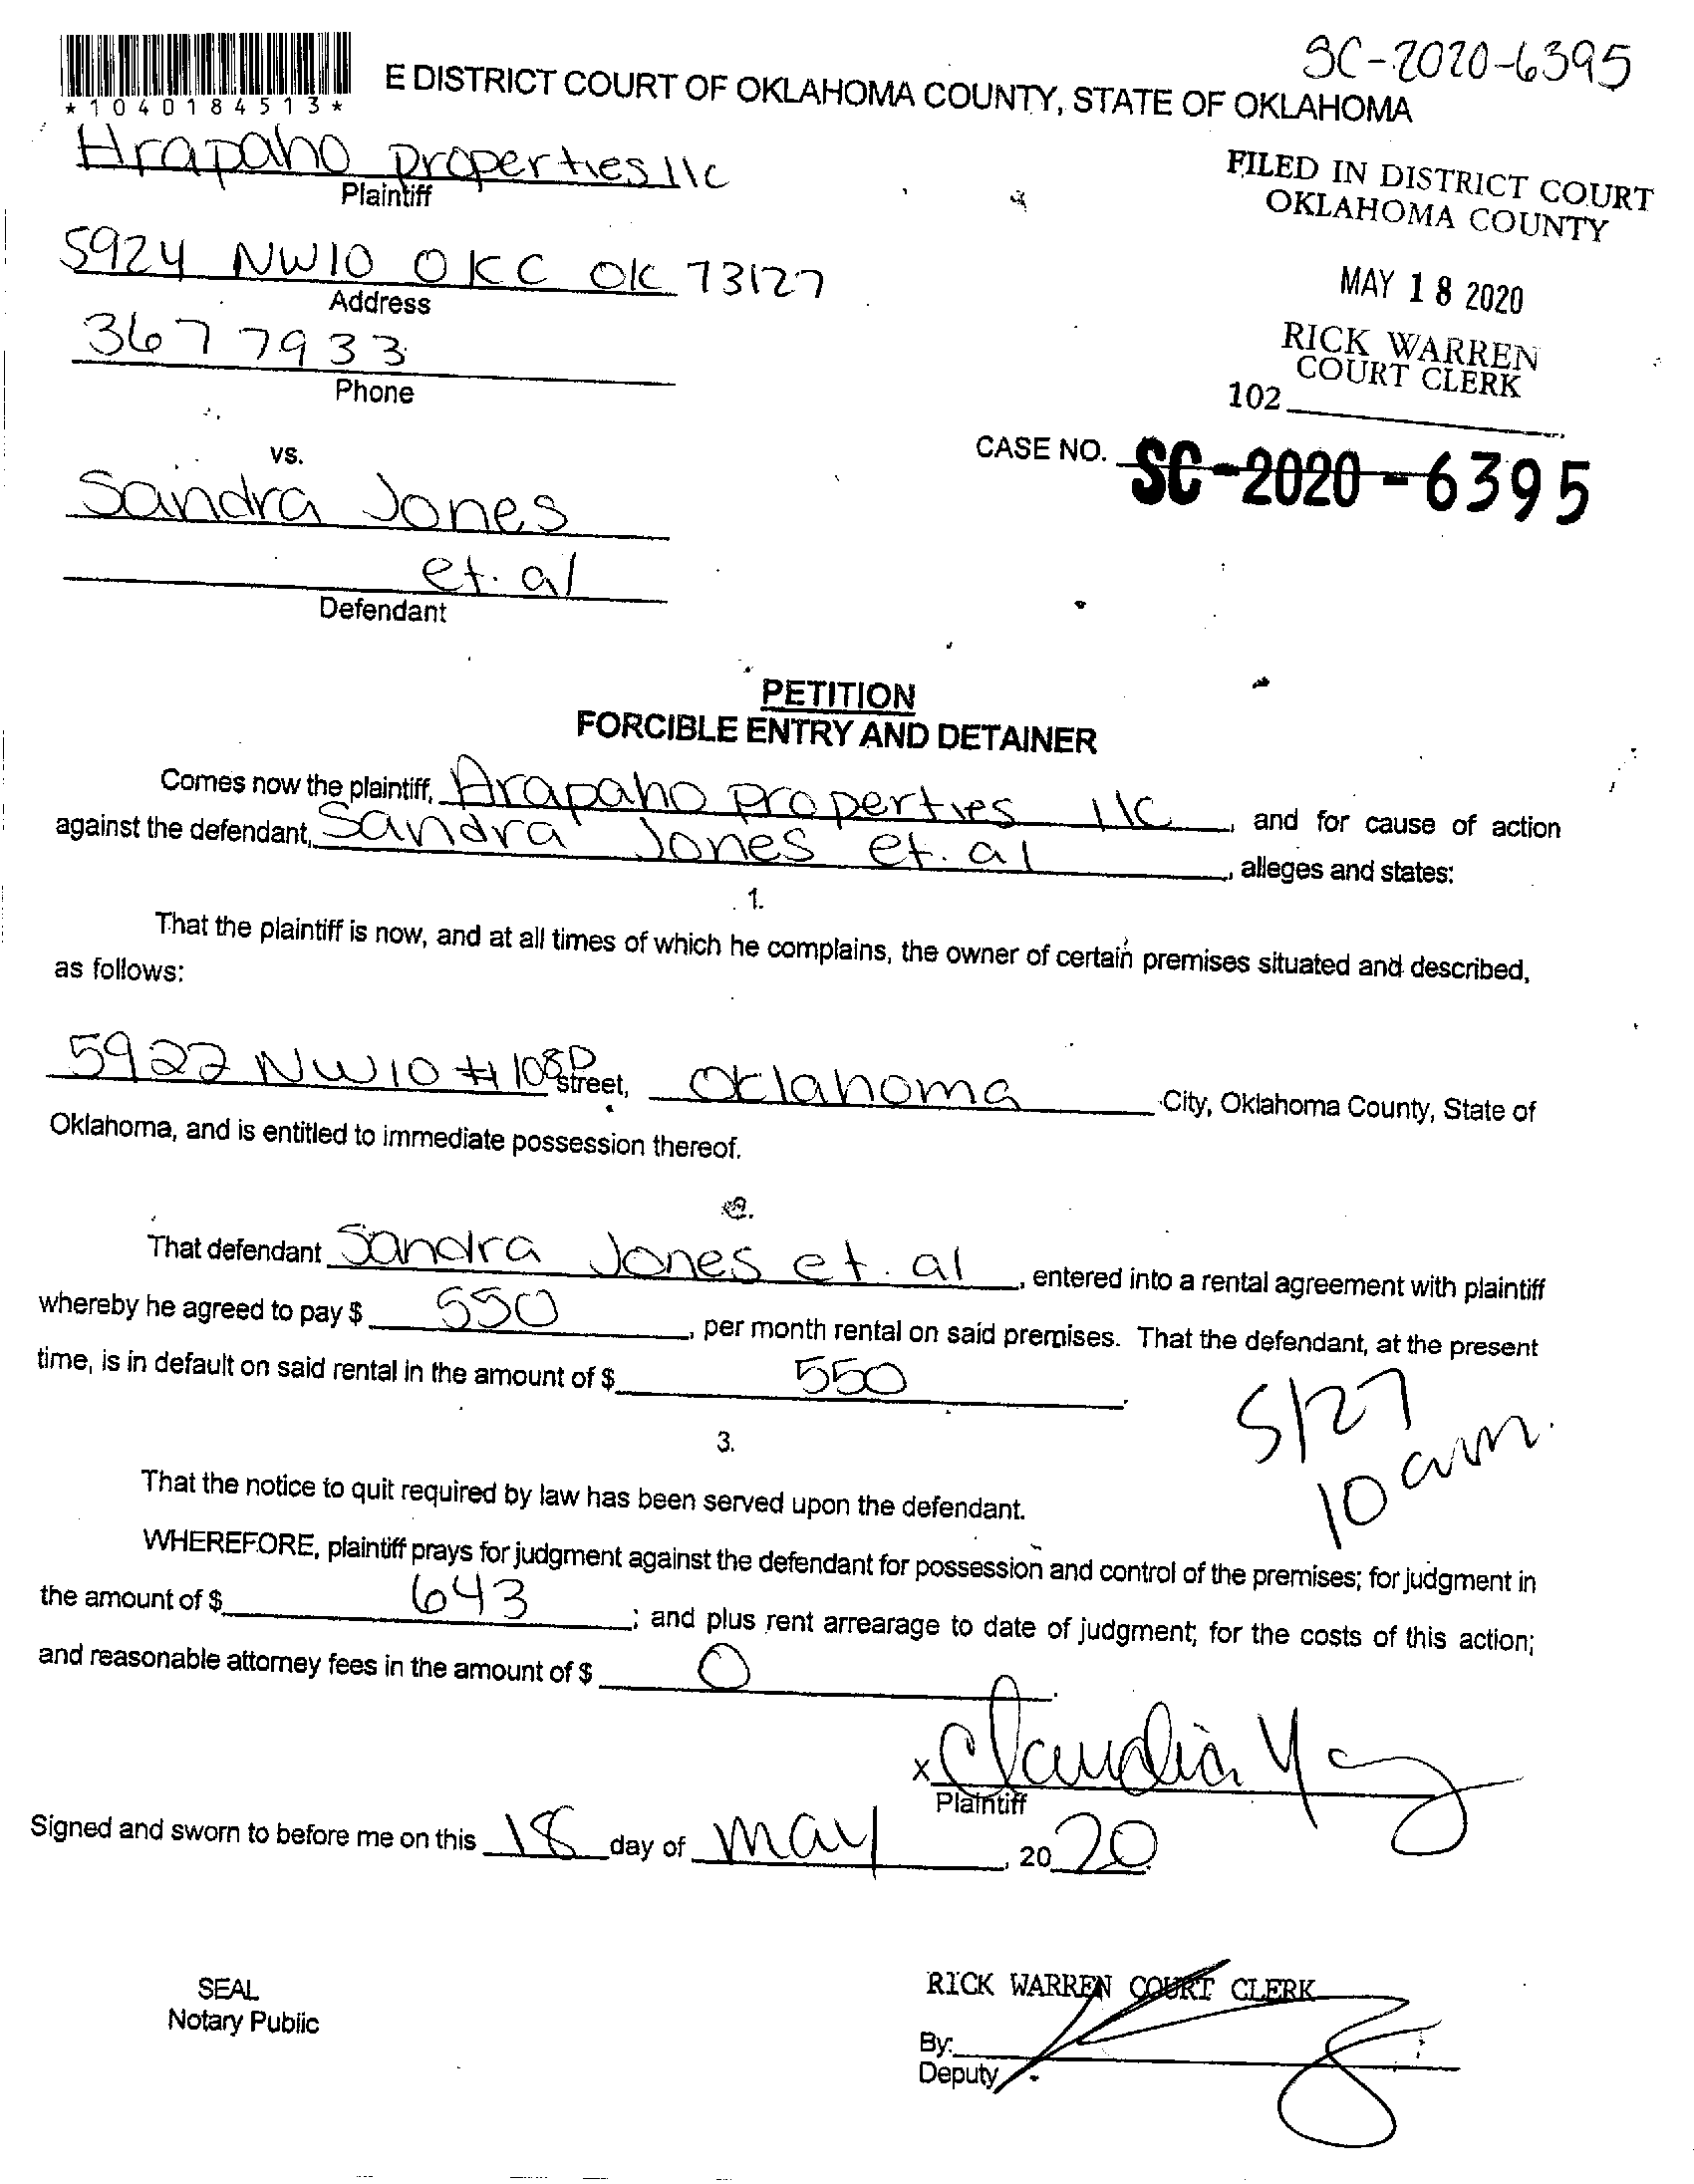 SC-2020-6395
*1040184513*
E DISTRICT COURT OF OKLAHOMA COUNTY, STATE OF OKLAHOMA
Arapaho properties llc
Plaintiff
FILED IN DISTRICT COURT
OKLAHOMA COUNTY
5924 NW10 OKC OK 73127
Address
MAY 18 2020
3677933
Phone
RICK WARREN
COURT CLERK
102
vs.
CASE NO. SC-2020-6395
Sandra Jones
et. al
Defendant
PETITION
FORCIBLE ENTRY AND DETAINER
Comes now the plaintiff, Arapaho properties llc, and for cause of action
against the defendant, Sandra Jones et. al, alleges and states:
1.
That the plaintiff is now, and at all times of which he complains, the owner of certain premises situated and described,
as follows:
5922 NW10 #108D street, Oklahoma City, Oklahoma County, State of
Oklahoma, and is entitled to immediate possession thereof.
2.
That defendant Sandra Jones et. al, entered into a rental agreement with plaintiff
whereby he agreed to pay $ 550, per month rental on said premises. That the defendant, at the present
time, is in default on said rental in the amount of $ 550.
5/27
10 am.
3.
That the notice to quit required by law has been served upon the defendant.
WHEREFORE, plaintiff prays for judgment against the defendant for possession and control of the premises; for judgment in
the amount of $ 643; and plus rent arrearage to date of judgment; for the costs of this action;
and reasonable attorney fees in the amount of $ 0.
x Claudia
Plaintiff
Signed and sworn to before me on this 18 day of May, 2020
SEAL
Notary Public
RICK WARREN COURT CLERK
By:
Deputy